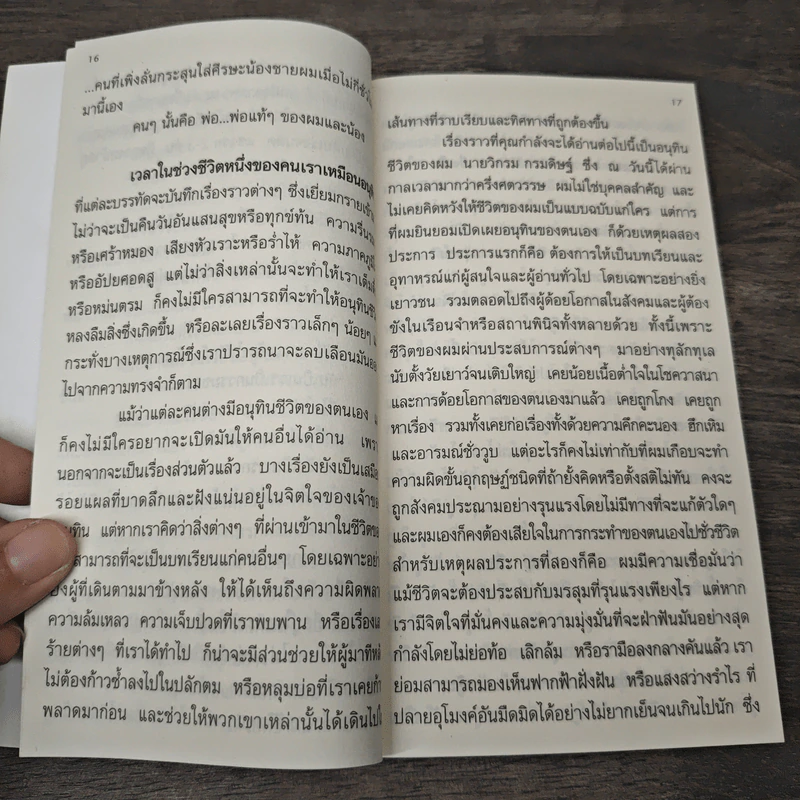 16
...คนที่เพิ่งลั่นกระสุนใส่ศีรษะน้องชายผมเมื่อไม่กี่ชั่วโ
มานี้เอง
คนๆ นั้นคือ พ่อ...พ่อแท้ๆ ของผมและน้อง
เวลาในช่วงชีวิตหนึ่งของคนเราเหมือน
ที่แต่ละบรรทัดจะบันทึกเรื่องราวต่างๆ ซึ่งเยี่ยมกรายเข้า
ไม่ว่าจะเป็นคืนวันอันแสนสุขหรือทุกข์ท้น ความรื่น
หรือเศร้าหมอง เสียงหัวเราะหรือร่ำไห้ ความภาคภูมิ
หรืออัปยศอดสู แต่ไม่ว่าสิ่งเหล่านั้นจะทำให้เราเต็ม
หรือหม่นตรม ก็คงไม่มีใครสามารถที่จะทำให้อนุทินชี
หลงลืมสิ่งซึ่งเกิดขึ้น หรือละเลยเรื่องราวเล็กๆ น้อยๆ แ
กระทั่งบางเหตุการณ์ซึ่งเราปรารถนาจะลบเลือนมันออ
ไปจากความทรงจำก็ตาม
แม้ว่าแต่ละคนต่างมีอนุทินชีวิตของตนเอง แ
ก็คงไม่มีใครอยากจะเปิดมันให้คนอื่นได้อ่าน เพร
นอกจากจะเป็นเรื่องส่วนตัวแล้ว บางเรื่องยังเป็นเสมือ
รอยแผลที่บาดลึกและฝังแน่นอยู่ในจิตใจของเจ้าขอ
ทิน แต่หากเราคิดว่าสิ่งต่างๆ ที่ผ่านเข้ามาในชีวิตขอ
สามารถที่จะเป็นบทเรียนแก่คนอื่นๆ โดยเฉพาะอย่า
ผู้ที่เดินตามมาข้างหลัง ให้ได้เห็นถึงความผิดพลา
ความล้มเหลว ความเจ็บปวดที่เราพบพาน หรือเรื่องเล
ร้ายต่างๆ ที่เราได้ทำไป ก็น่าจะมีส่วนช่วยให้ผู้มาทีห
ไม่ต้องก้าวซ้ำลงไปในปลักตม หรือหลุมบ่อที่เราเคยก้า
พลาดมาก่อน และช่วยให้พวกเขาเหล่านั้นได้เดินไปใ
17
เส้นทางที่ราบเรียบและทิศทางที่ถูกต้องขึ้น
เรื่องราวที่คุณกำลังจะได้อ่านต่อไปนี้เป็นอนุทิน
ชีวิตของผม นายวิกรม กรมดิษฐ์ ซึ่ง ณ วันนี้ได้ผ่าน
กาลเวลามากว่าครึ่งศตวรรษ ผมไม่ใช่บุคคลสำคัญ และ
ไม่เคยคิดหวังให้ชีวิตของผมเป็นแบบฉบับแก่ใคร แต่การ
ที่ผมยินยอมเปิดเผยอนุทินของตนเอง ก็ด้วยเหตุผลสอง
ประการ ประการแรกก็คือ ต้องการให้เป็นบทเรียนและ
อุทาหรณ์แก่ผู้สนใจและผู้อ่านทั่วไป โดยเฉพาะอย่างยิ่ง
เยาวชน รวมตลอดไปถึงผู้ด้อยโอกาสในสังคมและผู้ต้อง
ขังในเรือนจำหรือสถานพินิจทั้งหลายด้วย ทั้งนี้เพราะ
ชีวิตของผมผ่านประสบการณ์ต่างๆ มาอย่างทุลักทุเล
นับตั้งวัยเยาว์จนเติบใหญ่ เคยน้อยเนื้อต่ำใจในโชควาสนา
และการด้อยโอกาสของตนเองมาแล้ว เคยถูกโกง เคยถูก
หาเรื่อง รวมทั้งเคยก่อเรื่องทั้งด้วยความคึกคะนอง ฮึกเหิม
และอารมณ์ชั่ววูบ แต่อะไรก็คงไม่เท่ากับที่ผมเกือบจะทำ
ความผิดขั้นอุกฤษฏ์ชนิดที่ถ้ายั้งคิดหรือตั้งสติไม่ทัน คงจะ
ถูกสังคมประณามอย่างรุนแรงโดยไม่มีทางที่จะแก้ตัวใดๆ
และผมเองก็คงต้องเสียใจในการกระทำของตนเองไปชั่วชีวิต
สำหรับเหตุผลประการที่สองก็คือ ผมมีความเชื่อมั่นว่า
แม้ชีวิตจะต้องประสบกับมรสุมที่รุนแรงเพียงไร แต่หาก
เรามีจิตใจที่มั่นคงและความมุ่งมั่นที่จะฝ่าฟันมันอย่างสุด
กำลังโดยไม่ย่อท้อ เลิกล้ม หรือรามือลงกลางคันแล้ว เรา
ย่อมสามารถมองเห็นฟากฟ้าฝั่งฝัน หรือแสงสว่างรำไร ที่
ปลายอุโมงค์อันมืดมิดได้อย่างไม่ยากเย็นจนเกินไปนัก ซึ่ง